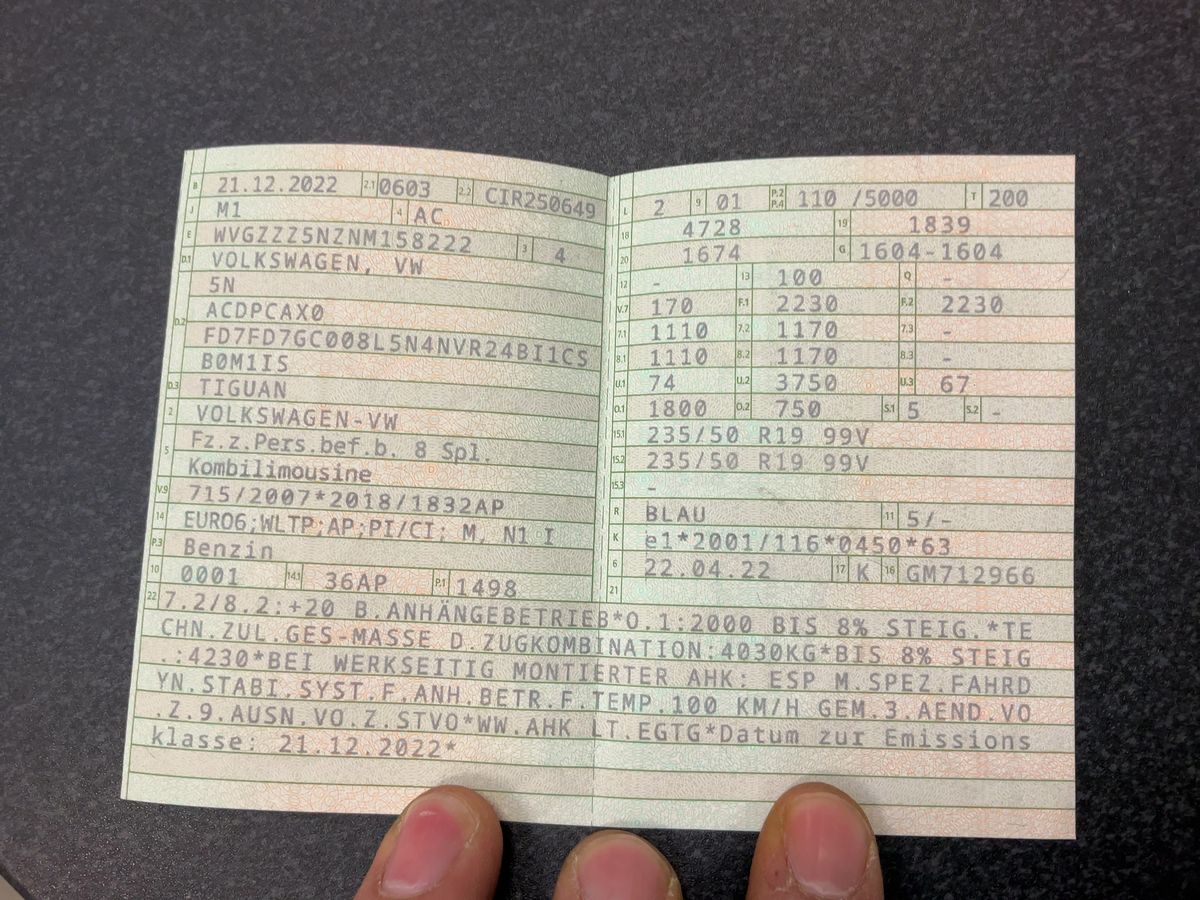 B 21.12.2022 2.1 0603 2.2 CIR250649
J M1 4 AC
E WVGZZZ5NZNM158222 3 4
D.1 VOLKSWAGEN, VW
5N
D.2 ACDPCAX0
FD7FD7GC008L5N4NVR24BI1CS
B0M1IS
D.3 TIGUAN
2 VOLKSWAGEN-VW
5 Fz.z.Pers.bef.b. 8 Spl.
Kombilimousine
V.9 715/2007*2018/1832AP
14 EURO6;WLTP;AP;PI/CI; M, N1 I
P.3 Benzin
10 0001 14.1 36AP P.1 1498
L 2 9 01 P.2 P.4 110 /5000 T 200
18 4728 19 1839
20 1674 G 1604-1604
12 - 13 100 Q -
V.7 170 F.1 2230 F.2 2230
7.1 1110 7.2 1170 7.3 -
8.1 1110 8.2 1170 8.3 -
U.1 74 U.2 3750 U.3 67
O.1 1800 O.2 750 S.1 5 S.2 -
15.1 235/50 R19 99V
15.2 235/50 R19 99V
15.3 -
R BLAU 11 5/-
K e1*2001/116*0450*63
6 22.04.22 17 K 16 GM712966
21
22 7.2/8.2:+20 B.ANHÄNGEBETRIEB*O.1:2000 BIS 8% STEIG.*TE
CHN.ZUL.GES-MASSE D.ZUGKOMBINATION:4030KG*BIS 8% STEIG
.:4230*BEI WERKSEITIG MONTIERTER AHK: ESP M.SPEZ.FAHRD
YN.STABI.SYST.F.ANH.BETR.F.TEMP.100 KM/H GEM.3.AEND.VO
.Z.9.AUSN.VO.Z.STVO*WW.AHK LT.EGTG*Datum zur Emissions
klasse: 21.12.2022*